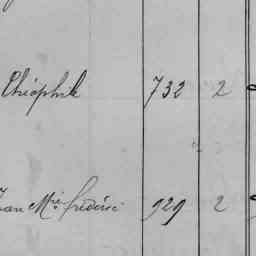 Théophile 732 2
Jean Mie Frédéric 929 2